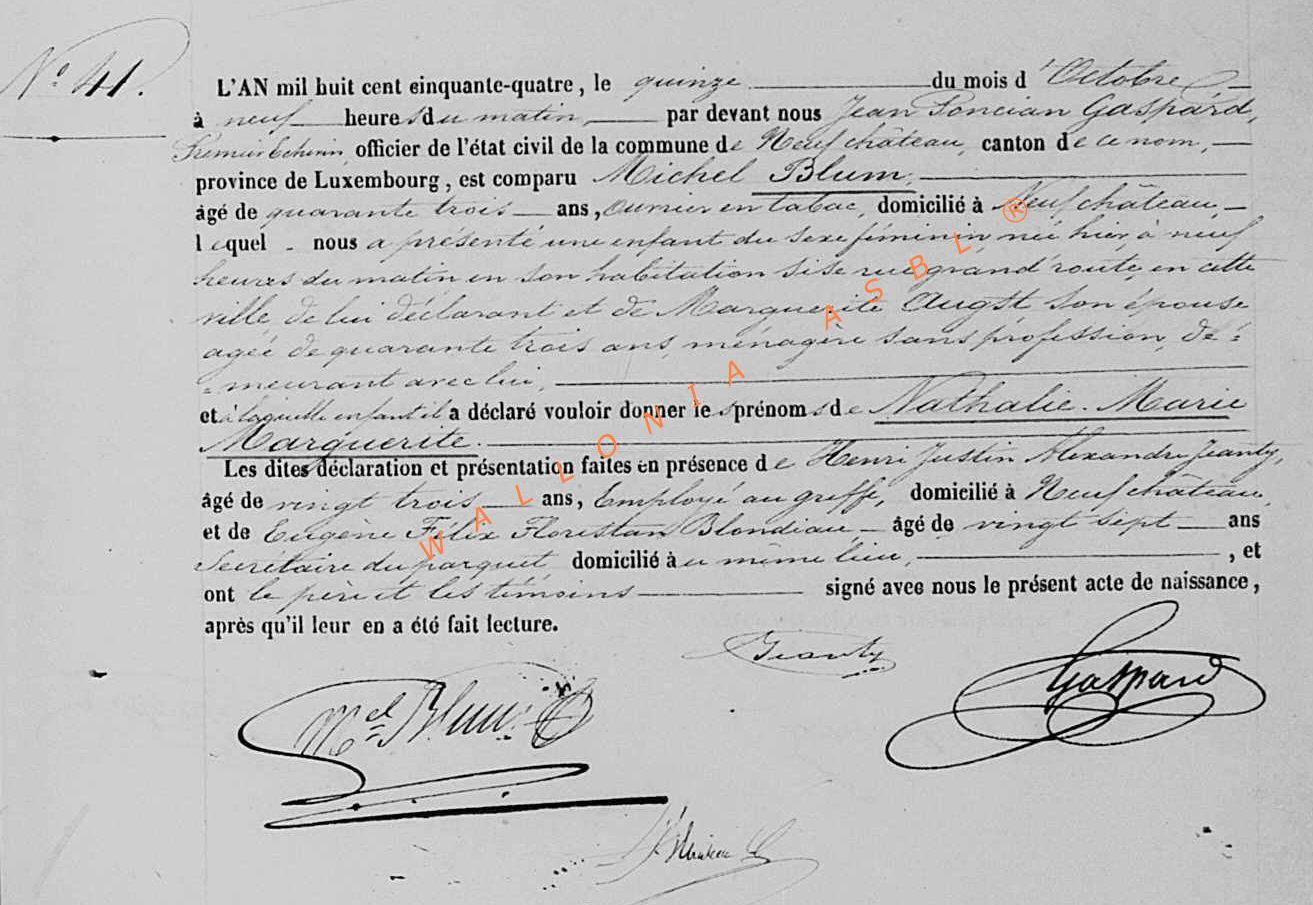 N° 41.
L'AN mil huit cent cinquante-quatre, le quinze du mois d'Octobre
à neuf heures du matin, par devant nous Jean Poncian Gaspard,
Premier Echevin, officier de l'état civil de la commune de Neufchâteau, canton de ce nom,
province de Luxembourg, est comparu Michel Blum,
âgé de quarante trois ans, ouvrier en tabac, domicilié à Neufchâteau,
lequel nous a présenté une enfant du sexe féminin, née hier, à neuf
heures du matin en son habitation sise rue grand'route, en cette
ville, de lui déclarant et de Marguerite Augst son épouse
agée de quarante trois ans, ménagère sans profession, dé=
=meurant avec lui,
et à laquelle enfant il a déclaré vouloir donner les prénoms de Nathalie-Marie
Marguerite.
Les dites déclaration et présentation faites en présence de Henri Justin Alexandre Jeanty,
âgé de vingt trois ans, Employé au greffe, domicilié à Neufchâteau,
et de Eugène Félix Florestan Blondiau, âgé de vingt sept ans
Secrétaire du parquet, domicilié au même lieu, , et
ont le père et les témoins signé avec nous le présent acte de naissance,
après qu'il leur en a été fait lecture.
Jeanty
Gaspard
Mel Blum
WALLONIA ASBL ®